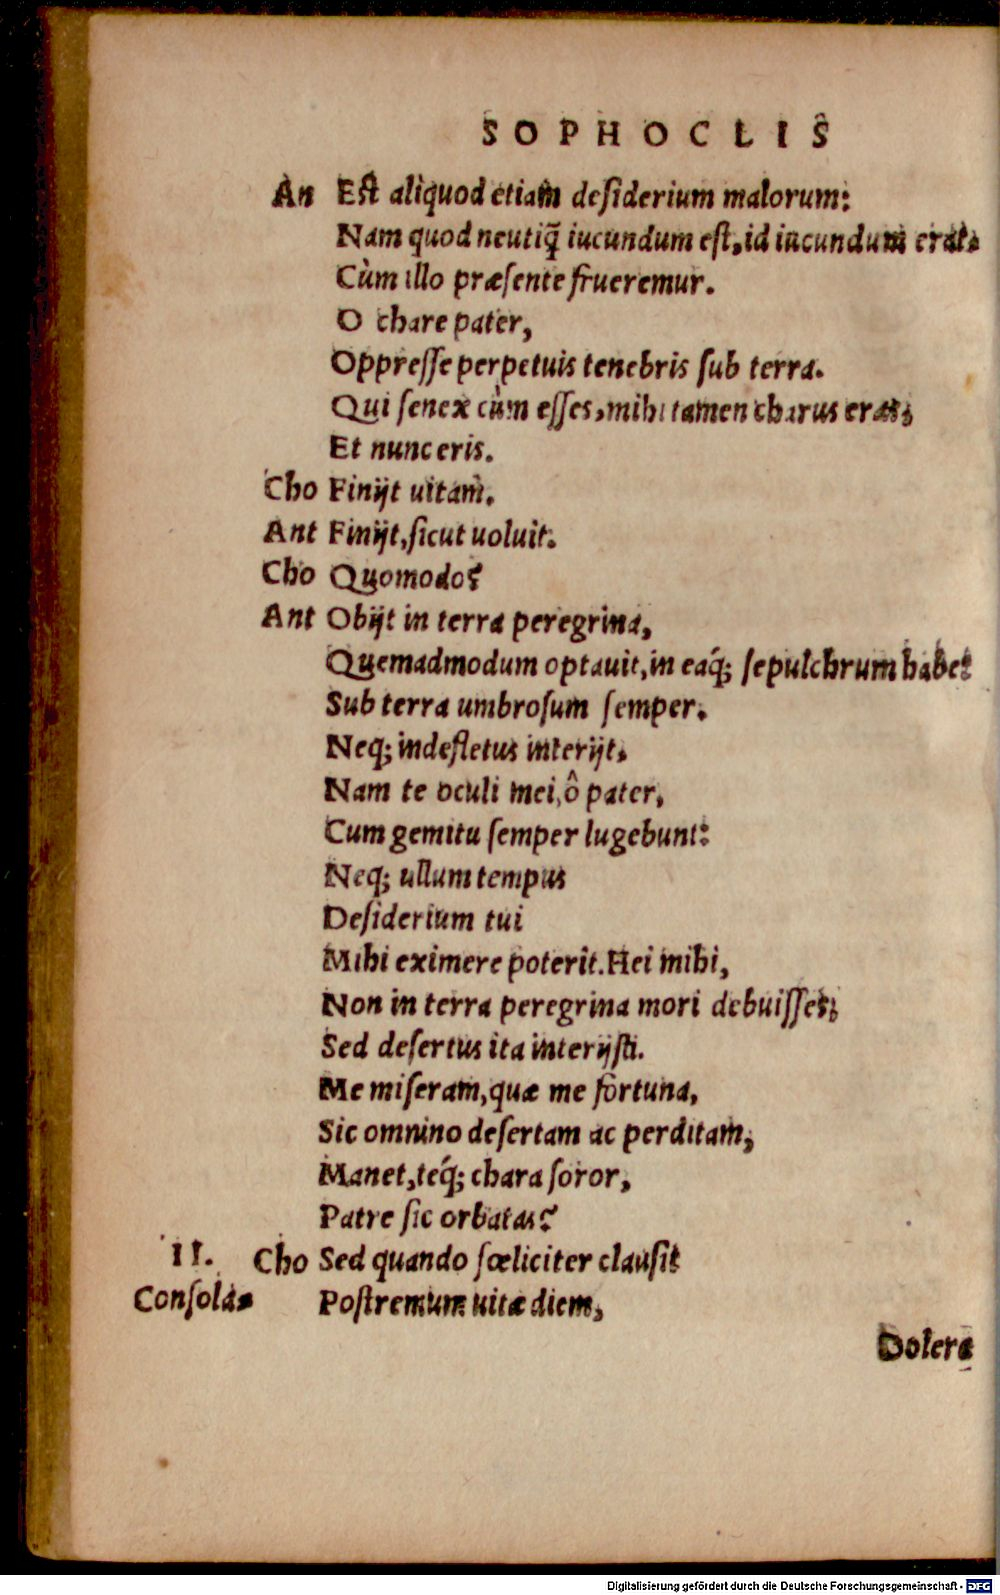 SOPHOCLIS
An Est aliquod etiam desiderium malorum:
Nam quod neutiq̃ iucundum est, id iucundum erat,
Cùm illo præsente frueremur.
O chare pater,
Oppresse perpetuis tenebris sub terra.
Qui senex cùm esses, mihi tamen charus eras,
Et nunc eris.
Cho Finijt uitam.
Ant Finijt, sicut uoluit.
Cho Quomodo?
Ant Obijt in terra peregrina,
Quemadmodum optauit, in eaq́; sepulchrum habet
Sub terra umbrosum semper.
Neq; indefletus interijt,
Nam te oculi mei, ô pater,
Cum gemitu semper lugebunt:
Neq; ullum tempus
Desiderium tui
Mihi eximere poterit. Hei mihi,
Non in terra peregrina mori debuisses,
Sed desertus ita interijsti.
Me miseram, quæ me fortuna,
Sic omnino desertam ac perditam,
Manet, teq́; chara soror,
Patre sic orbatas?
II. Cho Sed quando fœliciter clausit
Consola- Postremum uitæ diem,
Dolera
Digitalisierung gefördert durch die Deutsche Forschungsgemeinschaft - DFG